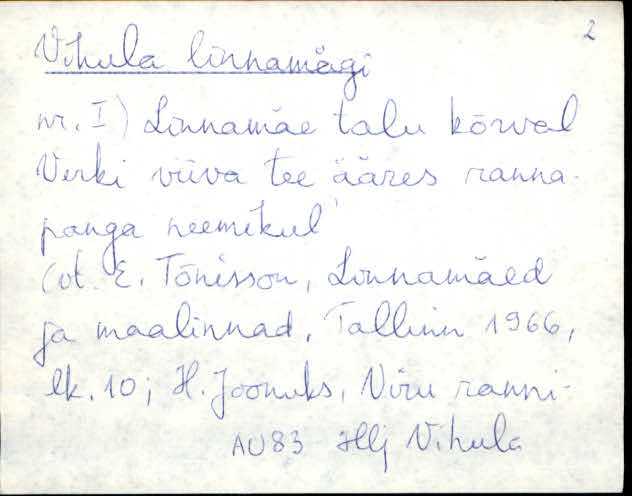 2
Vihula linnamägi
nr. I) Linnamäe talu kõrval
Verki viiva tee ääres ranna-
panga neemikul
(vt. E. Tõnisson, Linnamäed
ja maalinnad, Tallinn 1966,
lk. 10; H. Joonuks, Viru ranni-
AU83 Hlj Vihula